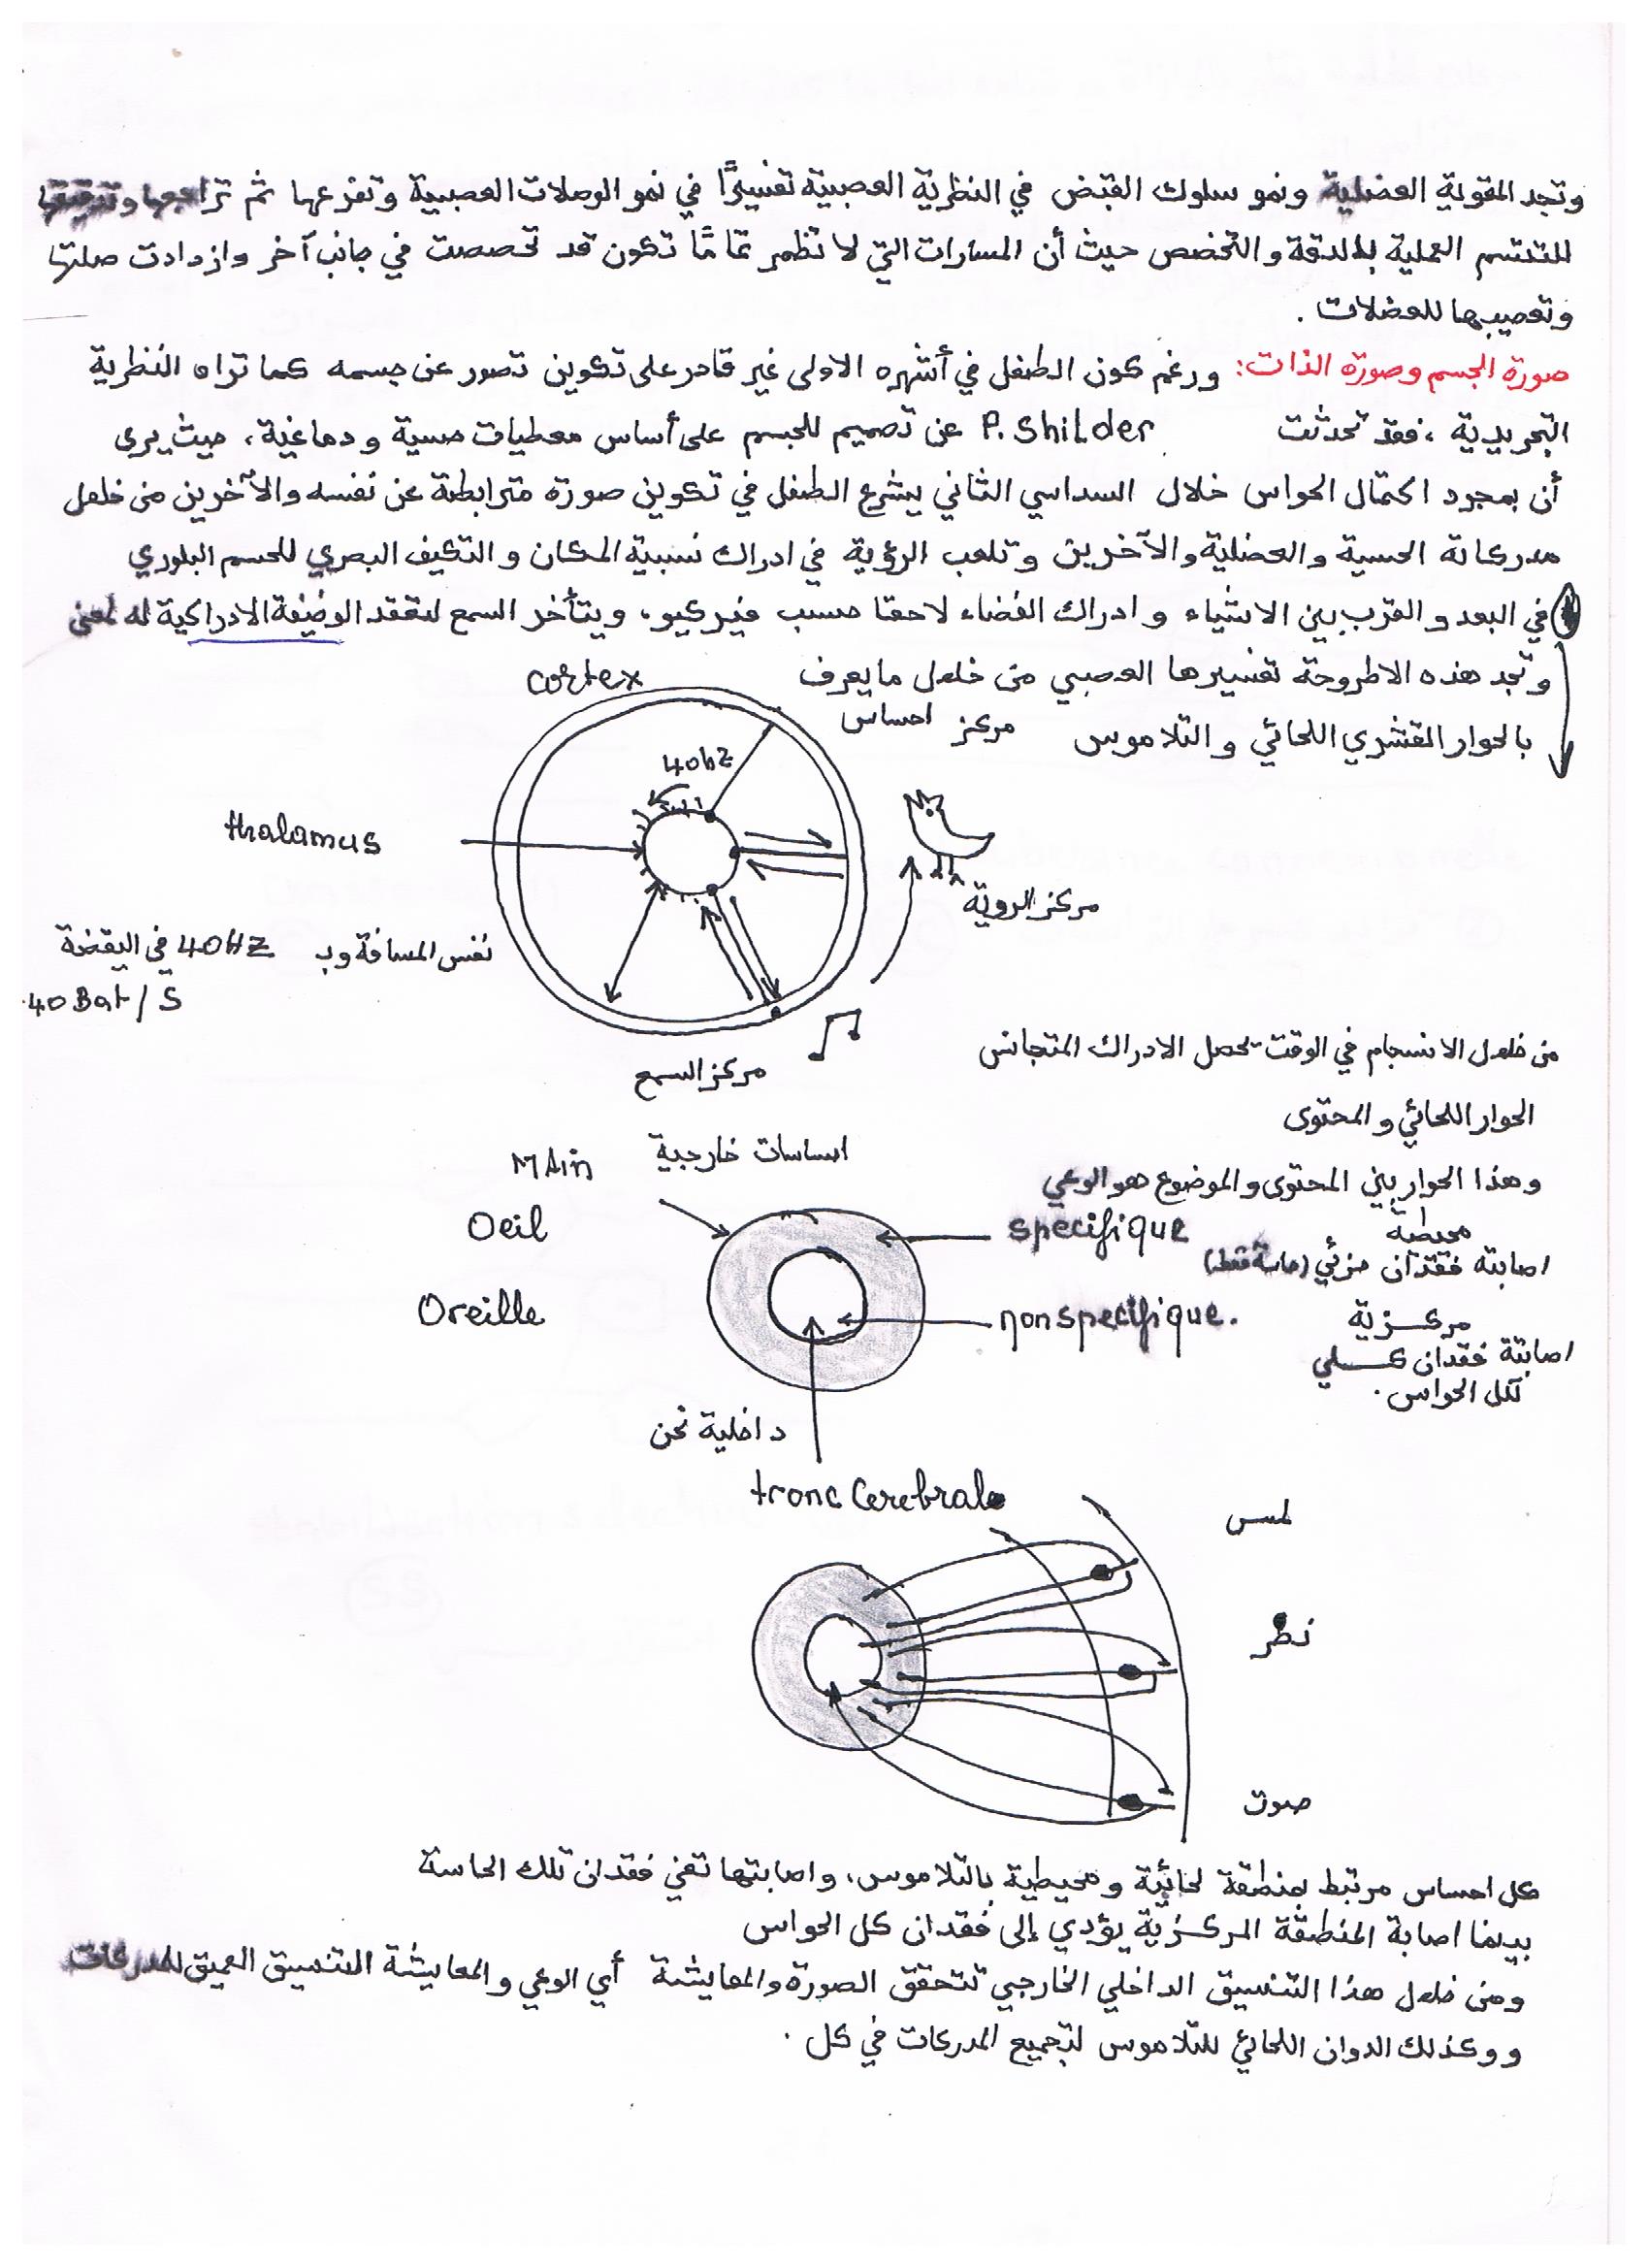 وتجد المقوية العضلية ونمو سلوك القبض في النظرية العصبية تفسيرًا في نمو الوصلات العصبية وتفرعها ثم تراجعها
لتتسم العملية بالدقة والتخصص حيث أن المسارات التي لا تظهر تمامًا تكون قد تخصصت في جانب آخر وازدادت صلتها
وتعصيبها للعضلات .
صورة الجسم وصورة الذات: ورغم كون الطفل في أشهره الاولى غير قادر على تكوين تصور عن جسمه كما تراه النظرية
التجريدية ، فقد تحدثت P. Shilder عن تصميم للجسم على أساس معطيات حسية ودماغية، حيث يرى
أن بمجرد اكتمال الحواس خلال السداسي الثاني يشرع الطفل في تكوين صورة مترابطة عن نفسه والآخرين من خلال
مدركاته الحسية والعضلية والآخرين وتلعب الرؤية في ادراك نسبية المكان والتكيف البصري للجسم البلوري
في البعد والقرب بين الاشياء وادراك الفضاء لاحقا حسب فيركيو، ويتأخر السمع لتعقد الوضيفة الادراكية له لمعنى
وتجد هذه الاطروحة تفسيرها العصبي من خلال ما يعرف
بالحوار القشري اللحائي والتلاموس
cortex
مركز احساس
40hz
thalamus
مركز الروية
نفس المسافة وب 40HZ في اليقضة
40 Bat/S
مركز السمع
من خلال الانسجام في الوقت يحصل الادراك المتجانس
الحوار اللحائي والمحتوى
وهذا الحوار بين المحتوى والموضوع هو الوعي
MAin
احساسات خارجية
Oeil
specifique
محيطية
اصابته فقدان جزئي (حاسة فقط)
Oreille
non specifique.
مركزية
اصابتة فقدان كلي
لكل الحواس .
داخلية نحن
tronc cerebrale
لمس
نظر
صوت
كل احساس مرتبط بمنطقة لحائية ومحيطية بالتلاموس، واصابتها تعني فقدان تلك الحاسة
بينما اصابة المنطقة المركزية يؤدي إلى فقدان كل الحواس
ومن خلال هذا التنسيق الداخلي الخارجي تتحقق الصورة والمعايشة أي الوعي والمعايشة التنسيق العميق للمدركات
ووكذلك الدوان اللحائي للتلاموس لتجميع المدركات في كل .